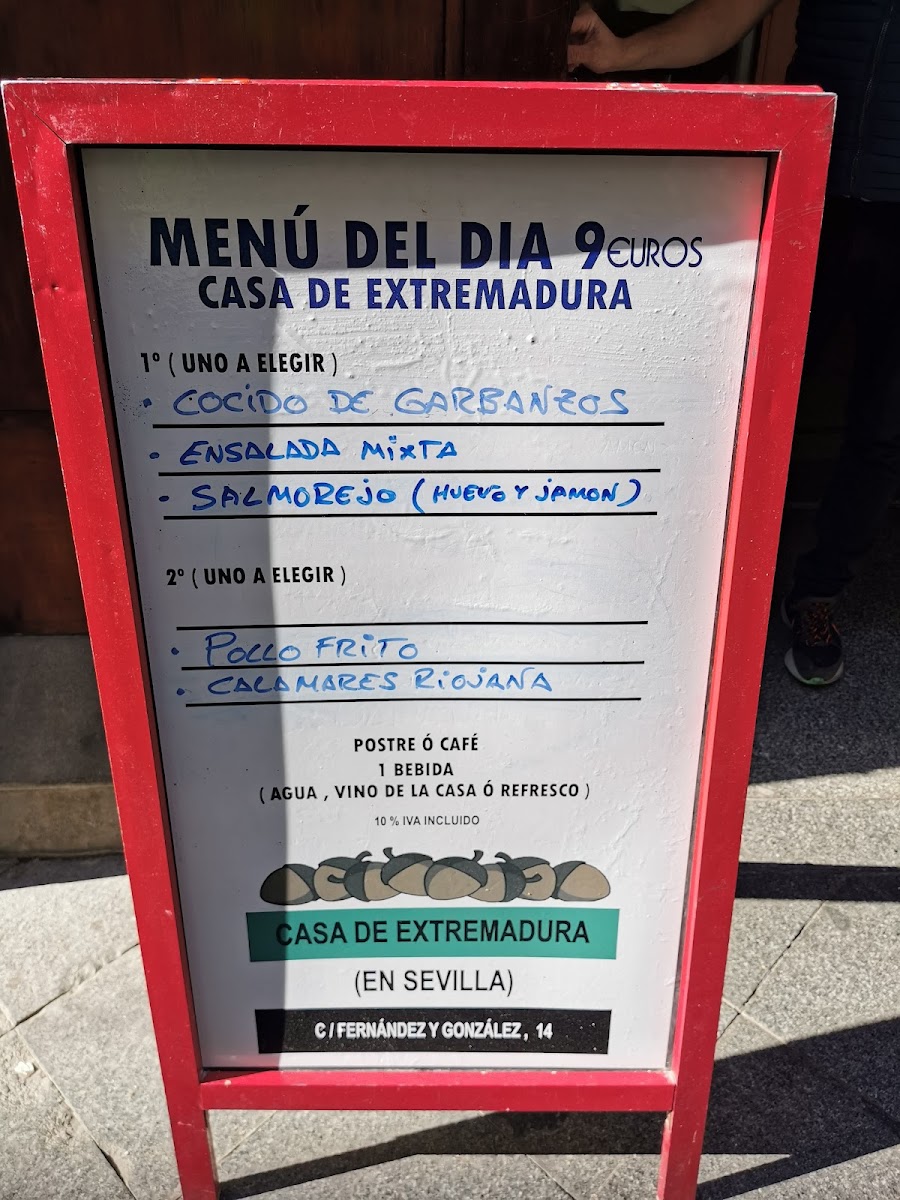 MENÚ DEL DIA 9€UROS
CASA DE EXTREMADURA
1º ( UNO A ELEGIR )
• COCIDO DE GARBANZOS
• ENSALADA MIXTA
• SALMOREJO (HUEVO Y JAMON)
2º ( UNO A ELEGIR )
• POLLO FRITO
• CALAMARES RIOJANA
POSTRE Ó CAFÉ
1 BEBIDA
( AGUA , VINO DE LA CASA Ó REFRESCO )
10 % IVA INCLUIDO
CASA DE EXTREMADURA
(EN SEVILLA)
C / FERNÁNDEZ Y GONZÁLEZ , 14